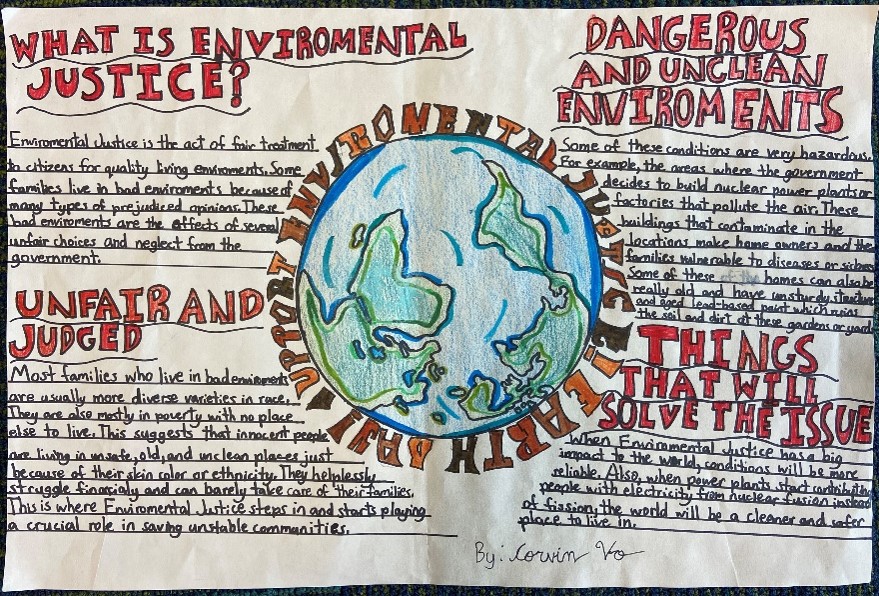 WHAT IS ENVIROMENTAL
JUSTICE?
Enviromental Justice is the act of fair treatment
to citizens for quality living enviroments. Some
families live in bad enviroments because of
many types of prejudiced opinions. These
bad enviroments are the effects of several
unfair choices and neglect from the
government.
UNFAIR AND
JUDGED
Most families who live in bad enviroments
are usually more diverse varieties in race.
They are also mostly in poverty with no place
else to live. This suggests that innocent people
are living in unsafe, old, and unclean places just
because of their skin color or ethnicity. They helplessly
struggle financially and can barely take care of their families.
This is where Enviromental Justice steps in and starts playing
a crucial role in saving unstable communities.
ENVIROMENTAL JUSTICE! EARTH DAY!
DANGEROUS
AND UNCLEAN
ENVIROMENTS
Some of these conditions are very hazardous.
For example, the areas where the government
decides to build nuclear power plants or
factories that pollute the air. These
buildings that contaminate in the
locations make home owners and the
families vulnerable to diseases or sickness
Some of these homes can also be
really old and have unsturdy structure
and aged lead-based paint which ruins
the soil and dirt at these gardens or yard
THINGS
THAT WILL
SOLVE THE ISSUE
When Enviromental Justice has a big
impact to the world, conditions will be more
reliable. Also, when power plants start contributing
people with electricity from nuclear fusion instead
of fission, the world will be a cleaner and safer
place to live in.
By: Corvin Vo